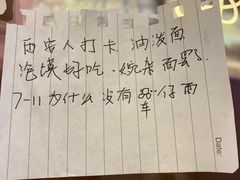 西安人打卡 油泼面
泡馍好吃. 面
7-11为什么没有 仔面
车
Date: